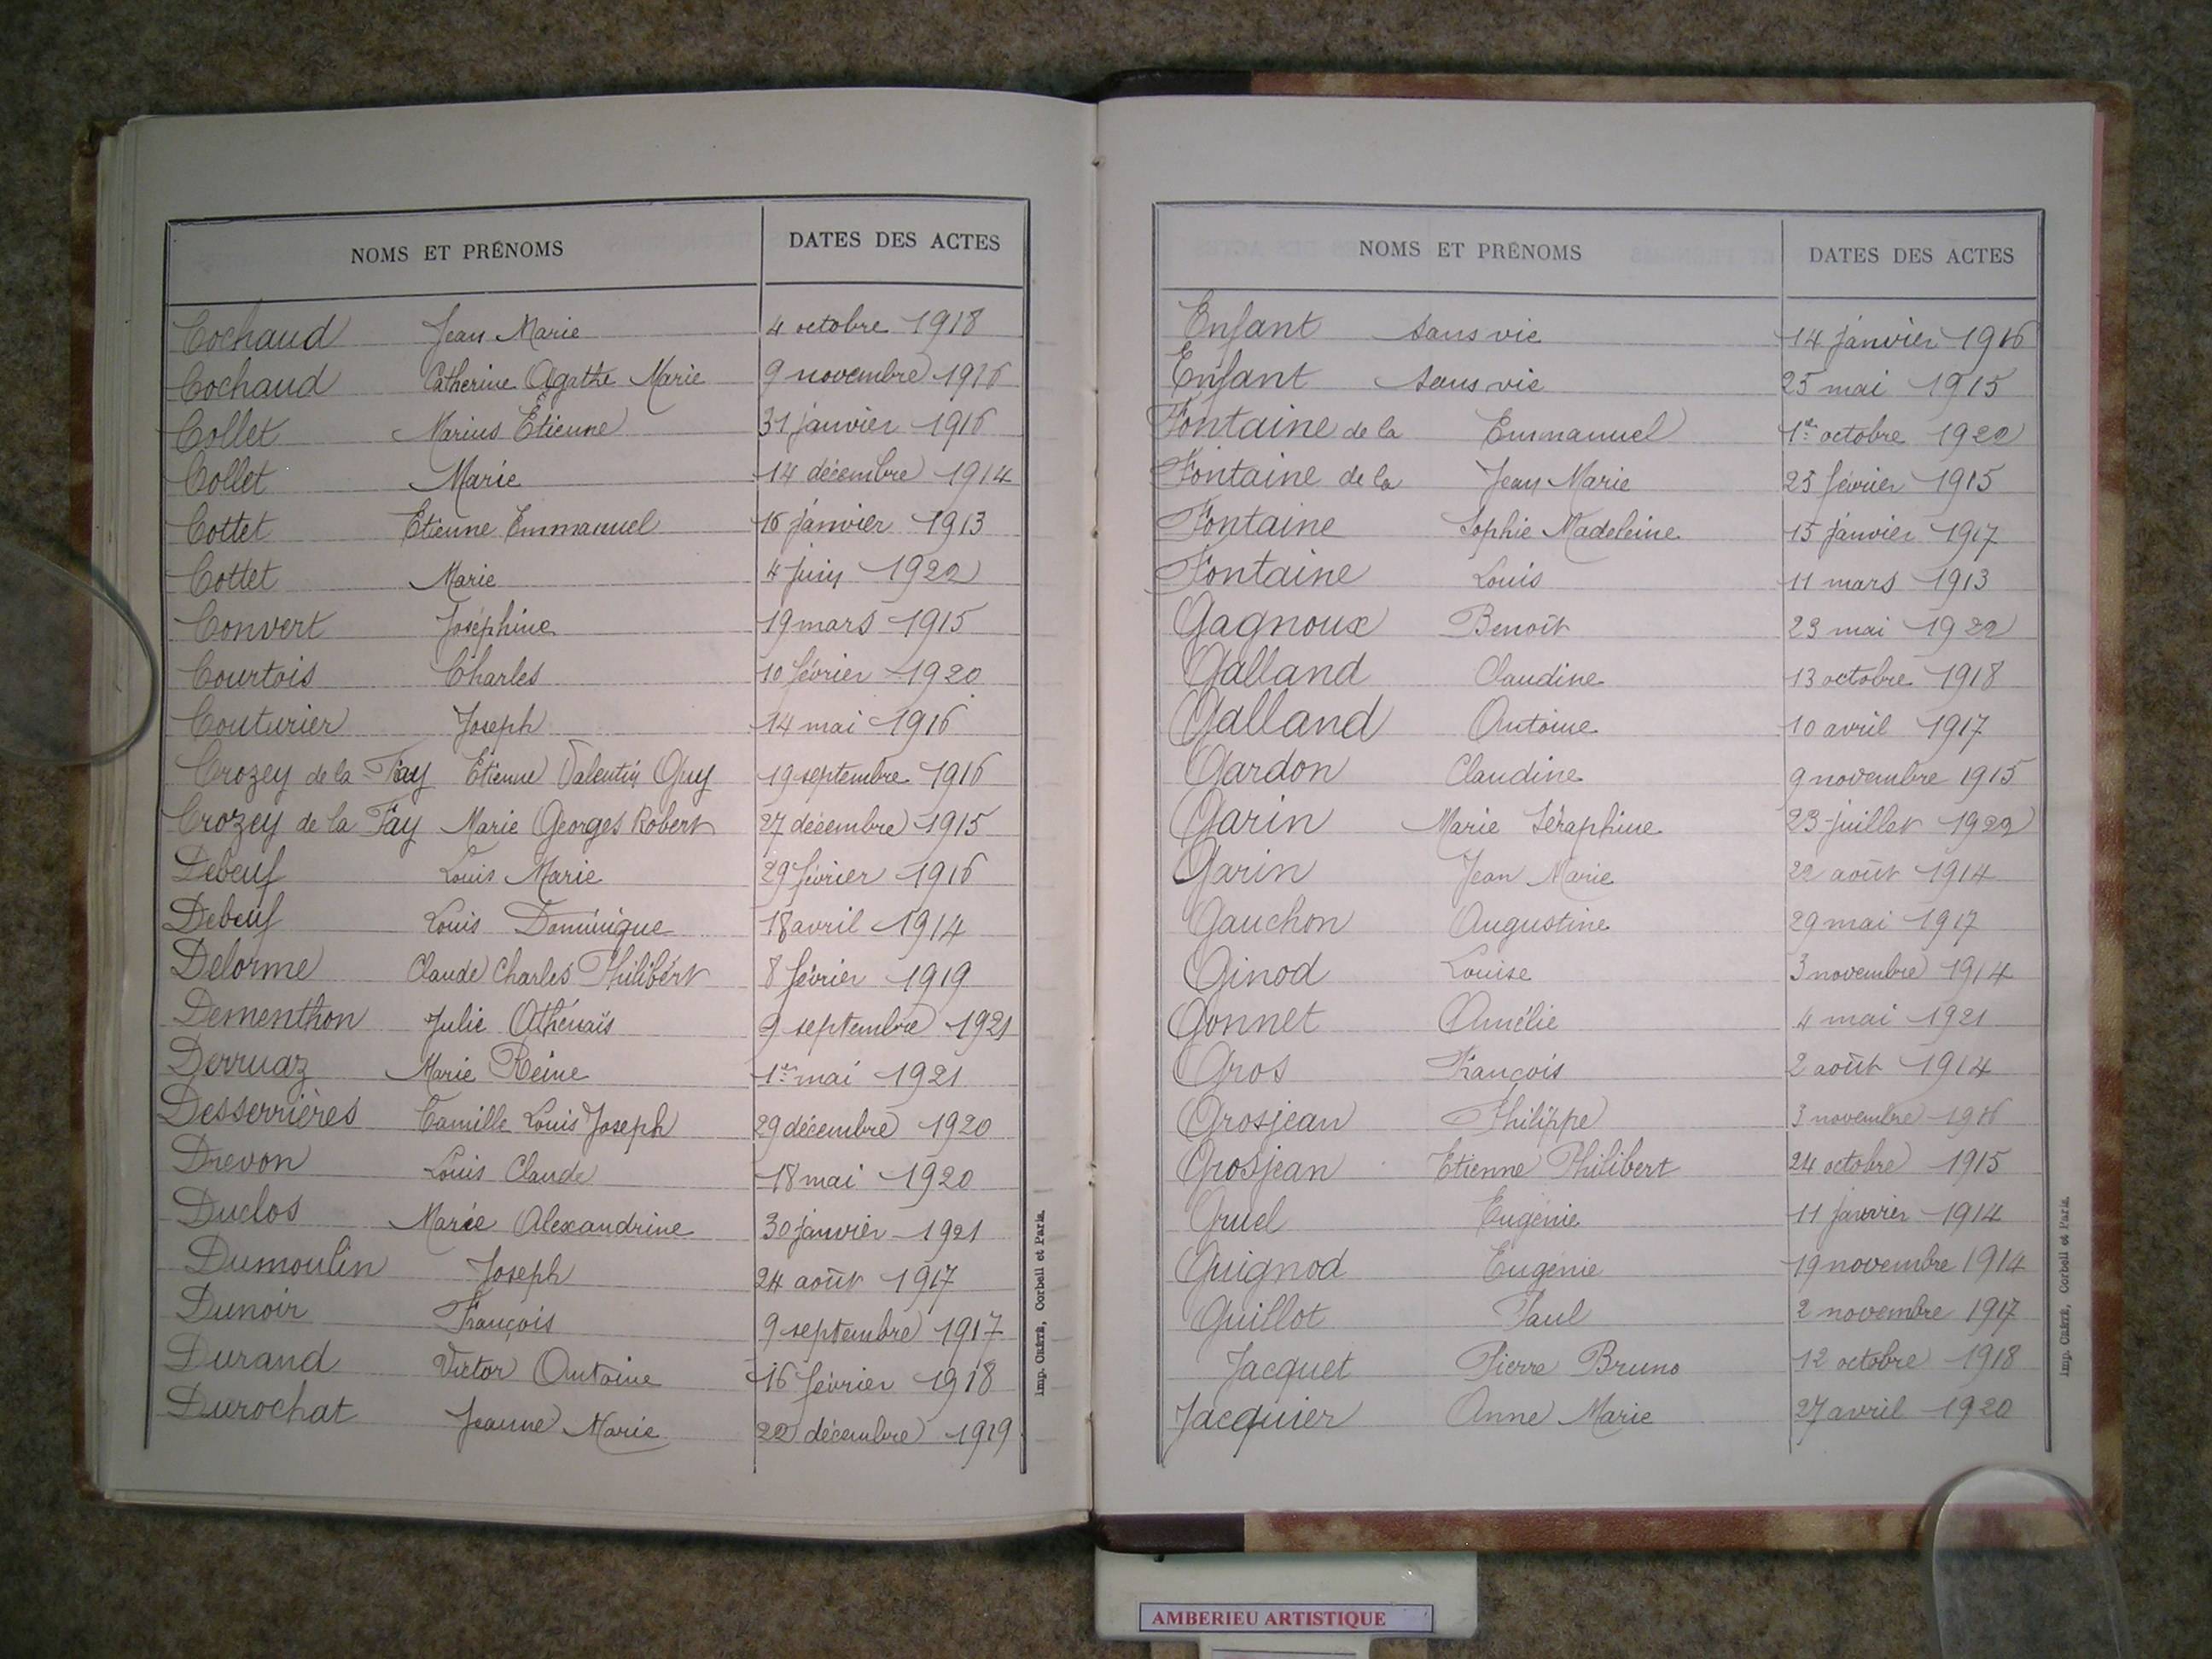 NOMS ET PRÉNOMS DATES DES ACTES
Cochaud Jean Marie 4 octobre 1918
Cochaud Catherine Agathe Marie 9 novembre 1916
Collet Marius Etienne 31 janvier 1916
Collet Marie 14 décembre 1914
Cottet Etienne Emmanuel 16 janvier 1913
Cottet Marie 4 juin 1922
Convert Joséphine 19 mars 1915
Courtois Charles 10 février 1920
Couturier Joseph 14 mai 1916
Crozey de la Fay Etienne Valentin Guy 19 septembre 1916
Crozey de la Fay Marie Georges Robert 27 décembre 1915
Debeuf Louis Marie 29 février 1916
Debeuf Louis Dominique 18 avril 1914
Delorme Claude Charles Philibert 8 février 1919
Dementhon Julie Athénaïs 9 septembre 1921
Derruaz Marie Reine 1er mai 1921
Desserrières Camille Louis Joseph 29 décembre 1920
Drevon Louis Claude 18 mai 1920
Duclos Marie Alexandrine 30 janvier 1921
Dumoulin Joseph 24 août 1917
Dunoir François 9 septembre 1917
Durand Victor Antoine 16 février 1918
Durochat Jeanne Marie 22 décembre 1919
Imp. CRÉTÉ, Corbeil et Paris.
NOMS ET PRÉNOMS DATES DES ACTES
Enfant sans vie 14 janvier 1916
Enfant sans vie 25 mai 1915
Fontaine de la Emmanuel 1er octobre 1922
Fontaine de la Jean Marie 25 février 1915
Fontaine Sophie Madeleine 15 janvier 1917
Fontaine Louis 11 mars 1913
Gagnoux Benoît 23 mai 1922
Galland Claudine 13 octobre 1918
Galland Antoine 10 avril 1917
Gardon Claudine 9 novembre 1915
Garin Marie Séraphine 23 juillet 1922
Garin Jean Marie 22 août 1914
Gauchon Augustine 29 mai 1917
Ginod Louise 3 novembre 1914
Gonnet Amélie 4 mai 1921
Gros François 2 août 1914
Grosjean Philippe 3 novembre 1916
Grosjean Etienne Philibert 24 octobre 1915
Gruel Eugénie 11 janvier 1914
Guignod Eugénie 19 novembre 1914
Guillot Paul 2 novembre 1917
Jacquet Pierre Bruno 12 octobre 1918
Jacquier Anne Marie 27 avril 1920
Imp. CRÉTÉ, Corbeil et Paris.
AMBERIEU ARTISTIQUE